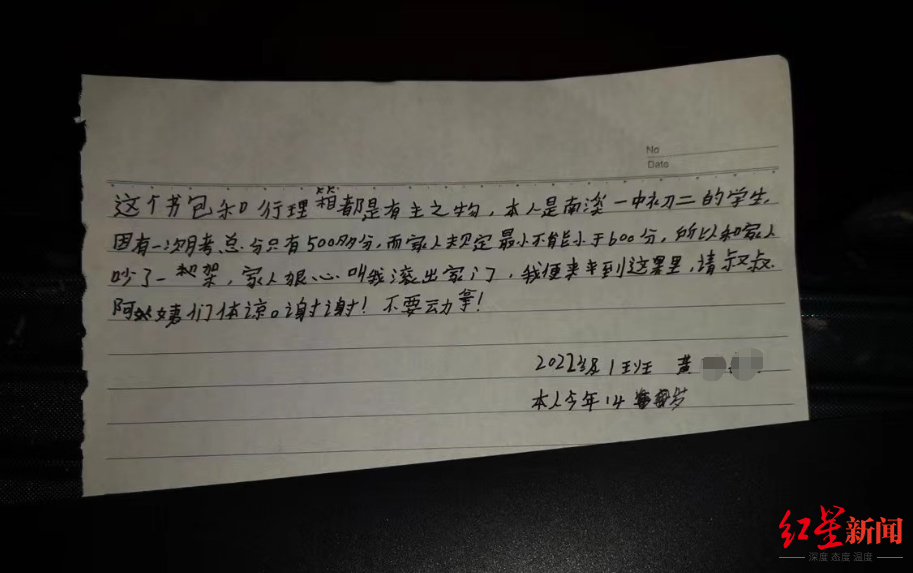 No
Date
这个书包和行理箱都是有主之物，本人是南溪一中初二的学生，
因有一次月考总分只有500多分，而家人规定最小不能小于600分，所以和家人
吵了一架，家人狠心叫我滚出家门，我便来到这里，请叔叔
阿姨们体谅。谢谢！不要动拿！
2022级1班 黄
本人今年14岁
红星新闻
深度 态度 温度